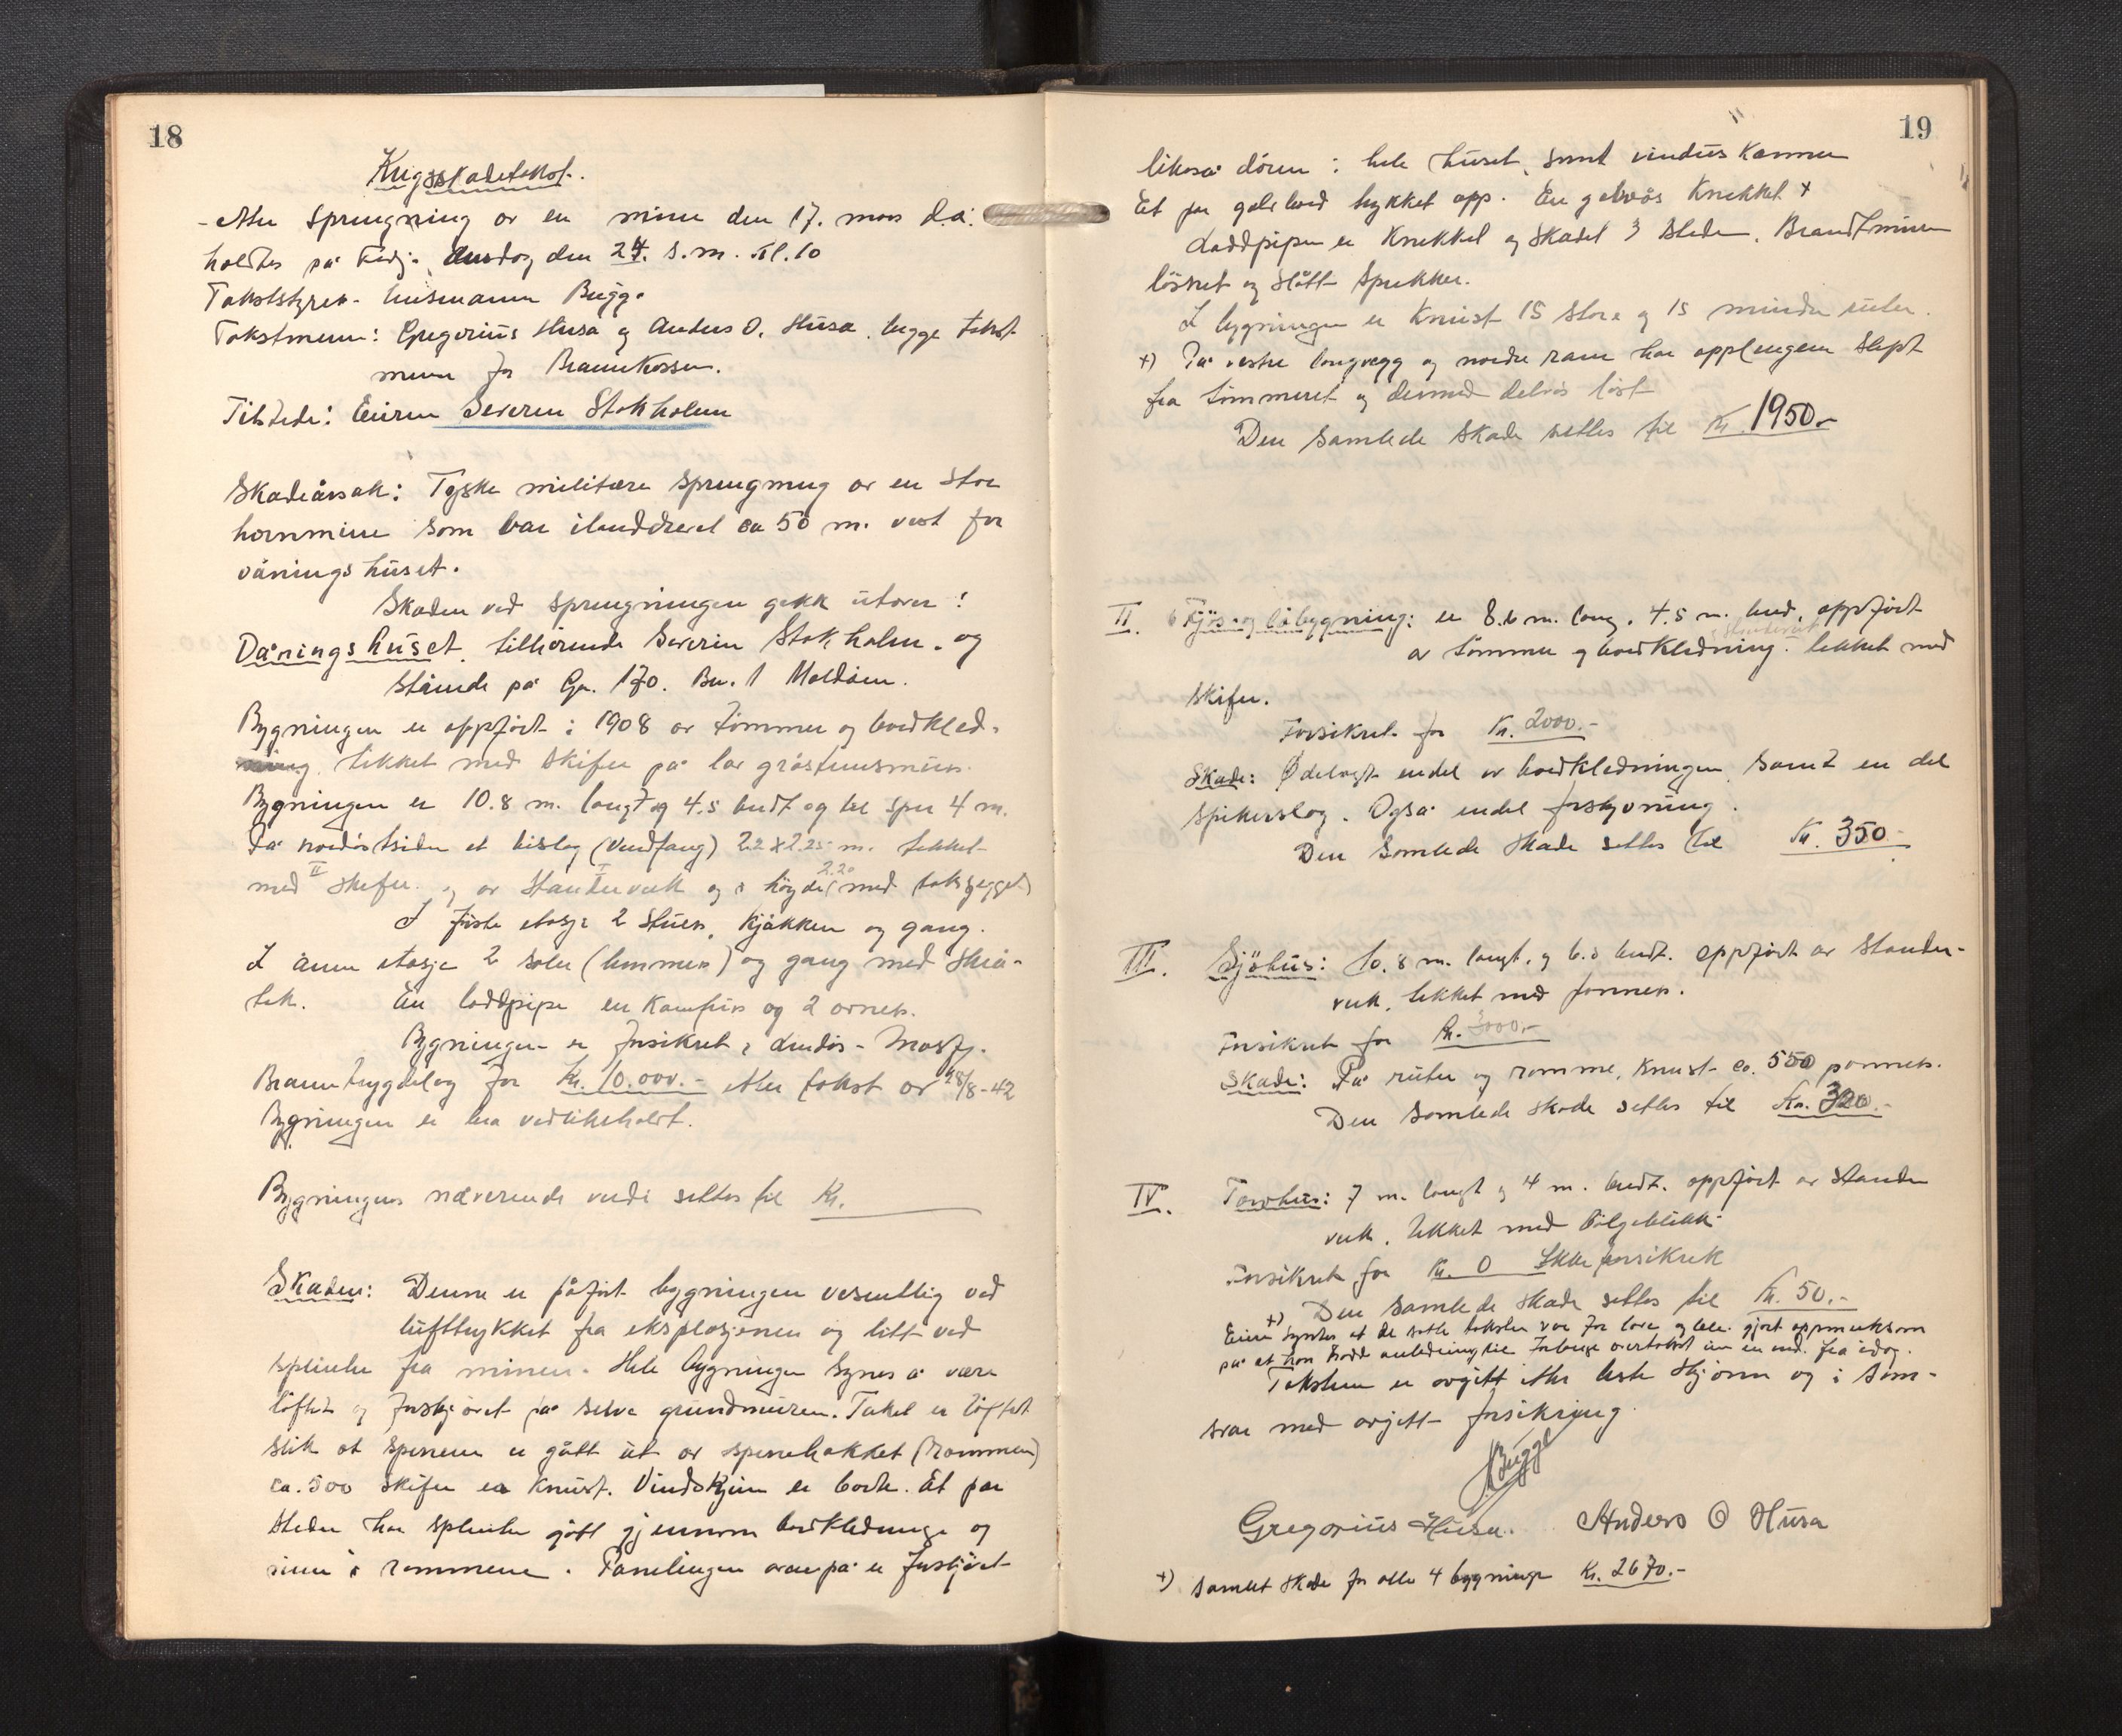 18
Krigsskadetakst.
- etter sprengning av en mine den 17. mars d.å.
holdtes på Fedje, den 24. s.m. kl. 10
Takststyrer- lensmann Bugge
Takstmenn: Gregorius Husa og Anders O. Husa, begge takst
menn for Brannkassen.
Tilstede: Eieren Severin Stokholm
Skadeårsak: Tyske militære sprengning av en stor
hornmine som var ilanddrevet ca 50 m. vest for
våningshuset.
Skaden ved sprengningen gikk utover:
Våningshuset, tilhørende Severin Stokholm, og
stående på Gn. 170. Bn. 1 Moldöen.
Bygningen er oppfört i 1908 av tömmer og bordkled-
ning, tekket med skifer på lav gråstensmur.
Bygningen er 10.8 m. langt og 4.5 bredt og bel 4 m.
På nordöstsiden et bislag (vindfang) 2.2 x 2.25 m. tekket
med skifer og av stenderverk og i höyde 2.20 (med taksjegget)
I förste etasje 2 stuer, kjökken og gang.
I annen etasje 2 saler (lemmer) og gang med skrå-
tak. En loddpipe en kamfur og 2 ovner.
Bygningen er forsikret i Lindås - Masfj.
Branntrygdelag for Kr. 10.000.- etter takst av 28/8-42
Bygningen er bra vedlikeholdt.
Bygningens nåverende verdi settes til Kr.
Skaden: Denne er påfört bygningen vesentlig ved
lufttrykket fra eksplosjonen og litt ved
splinter fra minen. Hele bygningen synes å være
löftet og forskjövet på selve grundmuren. Taket er löftet
slik at sperrene er gått ut av sperrehakket (rammen)
ca. 500 skifer er knust. Vindskjier er borte. Et par
steder har splinter gått gjennom bordkledninge og
inn i rommene. Panelingen ovenpå er forskjövet
19
likeså dörene i hele huset, samt vinduskarmer
Et par golvbord trykket opp. En golvås knekket +
Loddpipen er knekket og skadet 3 steder. Brandtmuren
lösnet og slått sprekker.
I bygningen er knust 15 store og 15 mindre ruter.
+) På vestre langvegg og nordre rame har opplengene slept
fra tömmeret og dermed delvis löst
Den samlede skade settes til Kr. 1950.-
II. Fjös- og löebygning: er 8.6 m. lang, 4.5 m. bred, oppfört
av tömmer og stenderverk bordkledning. Tekket med
skifer.
Forsikret for Kr. 2000.-
Skade: Ödelagt endel av bordkledningen samt en del
spikerslag. Også endel forskyvning.
Den samlede skade settes til Kr. 350.-
III. Sjöhus: 10.8 m. langt, og 6.5 bredt. Oppfört av stender-
verk, tekket med panner.
Forsikret for Kr. 3000.-
Skade: På ruter og ramme, knust ca. 550 panner.
Den samlede skade settes til Kr. 320.-
IV. Torvhus: 7 m. langt og 4 m. bredt. oppfört av stender
verk, tekket med bölgeblikk
Forsikret for Kr. 0 Ikke forsikret
+) Den samlede skade settes til Kr. 50.-
Eieren syntes at de satte takster var for lave og ble gjort oppmerksom
på at han hadde anledning til forlange overtakst inn en md. fra idag.
Taksten er avgitt etter beste skjönn og i sam-
svar med avgitt forsikring.
Bugge
Gregorius Husa. Anders O Husa
+) Samlet skade for alle 4 bygninger Kr. 2670.-